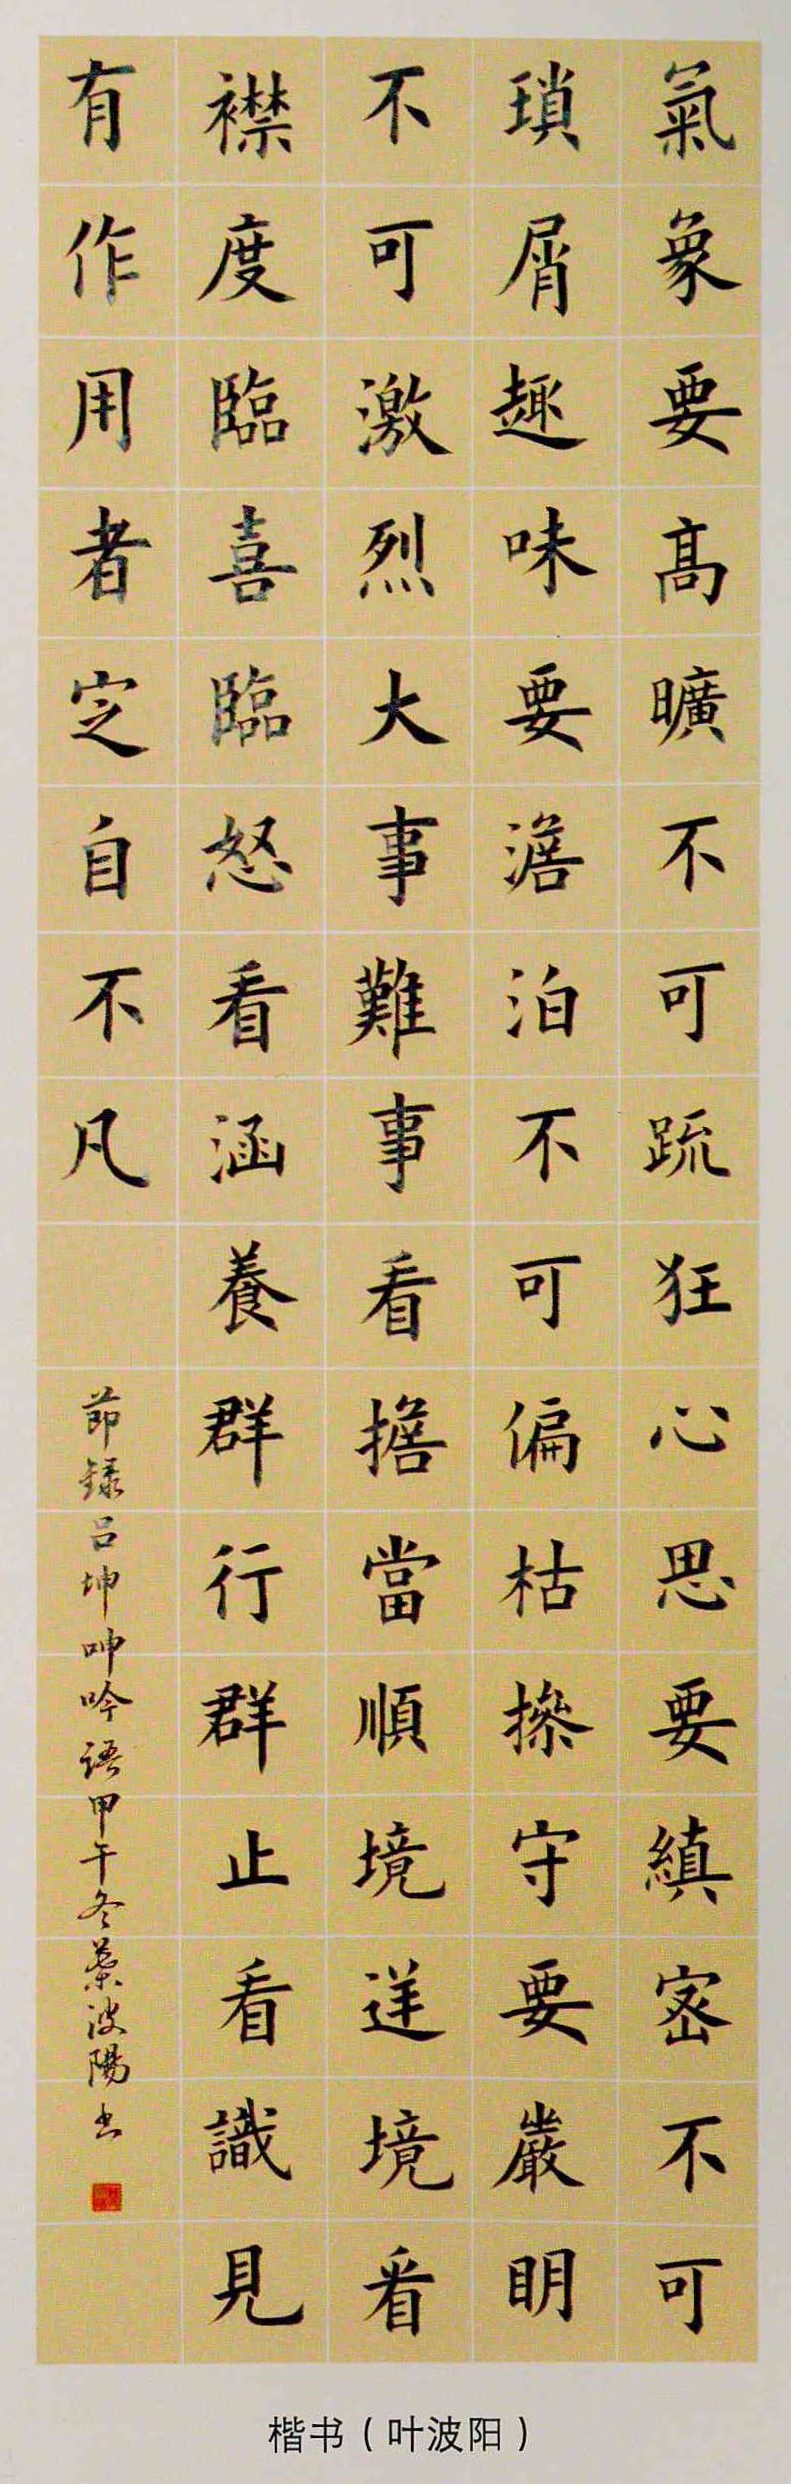 氣象要髙曠不可疏狂心思要縝密不可
瑣屑趣味要澹泊不可偏枯操守要嚴明
不可激烈大事難事看擔當順境逆境看
襟度臨喜臨怒看涵養群行群止看識見
有作用者定自不凡
節録吕坤呻吟語甲午冬葉波陽書
楷书（叶波阳）